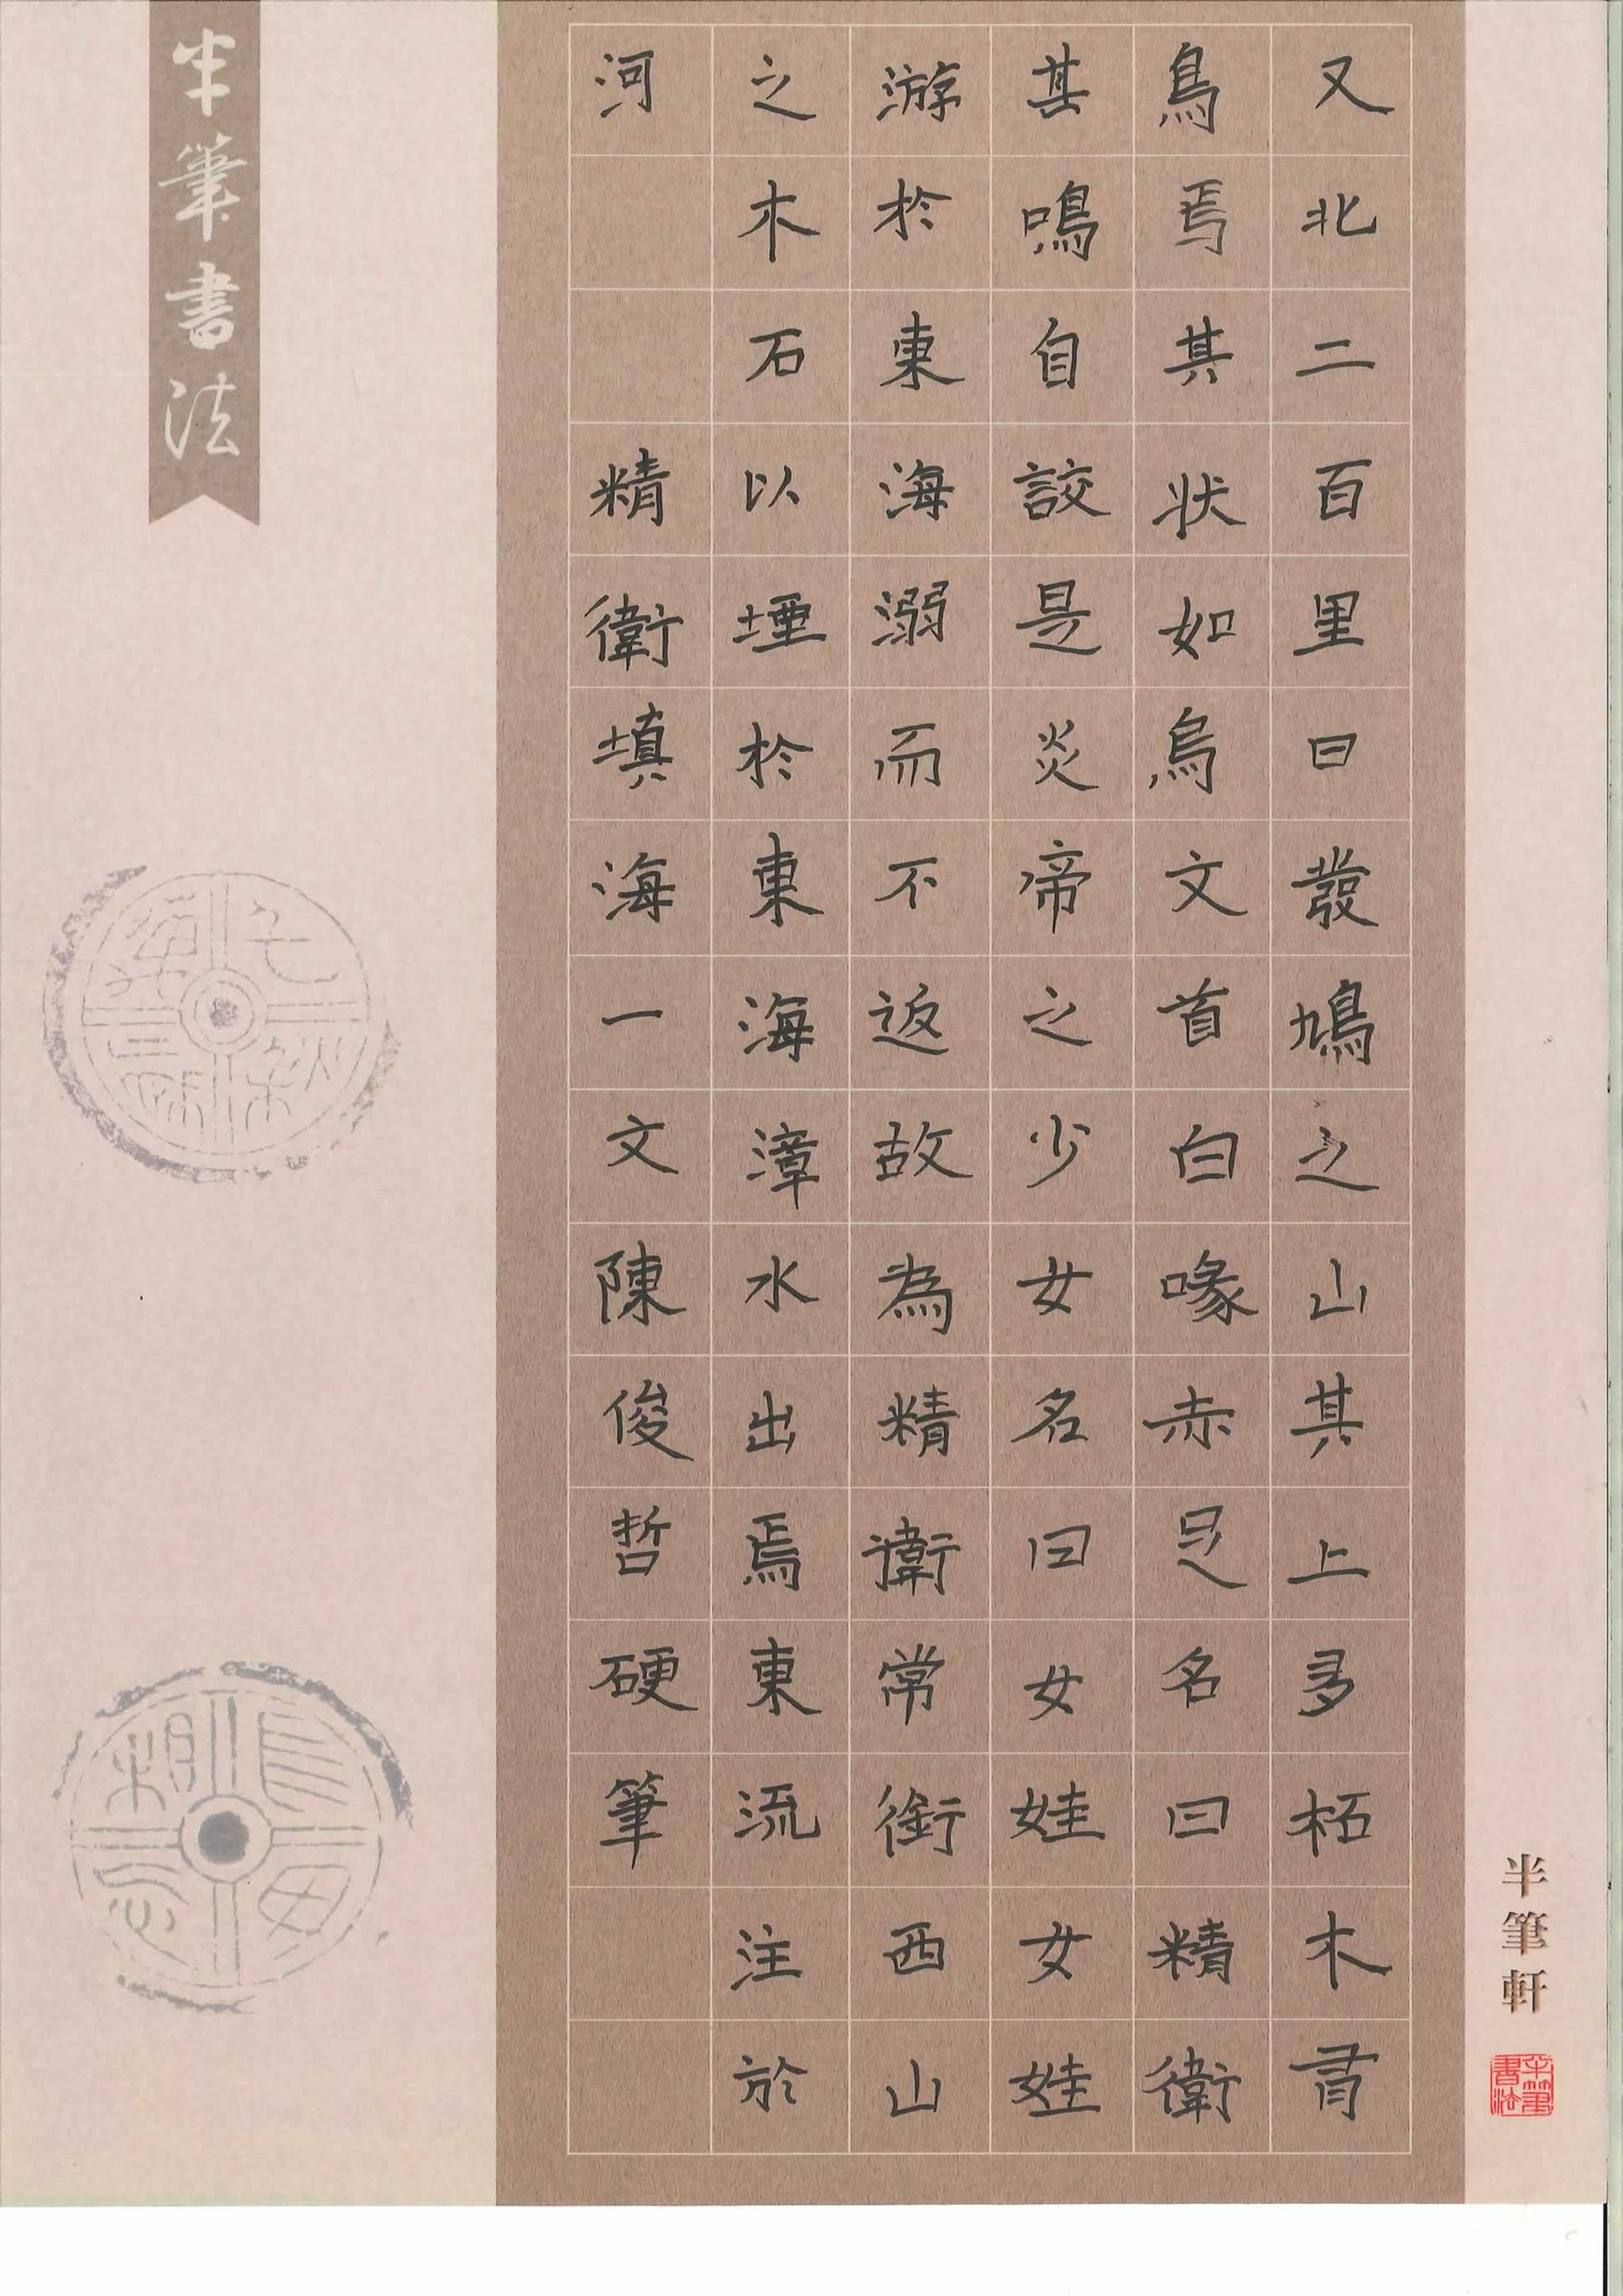 又北二百里曰發鳩之山其上多柘木有
鳥焉其狀如烏文首白喙赤足名曰精衛
其鳴自詨是炎帝之少女名曰女娃女娃
游於東海溺而不返故為精衛常銜西山
之木石以堙於東海漳水出焉東流注於
河 精衛填海一文陳俊哲硬筆
半筆書法
半筆軒
半筆書法